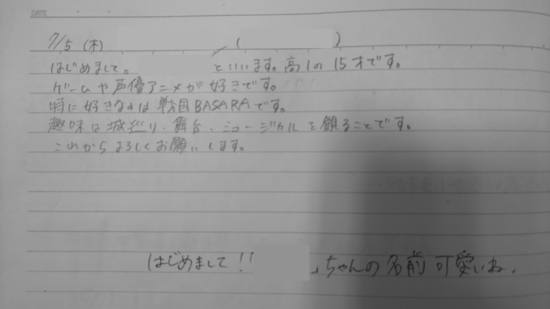 DATE
7/5 (木) ( )
はじめまして。 といいます。高1の15才です。
ゲームや声優アニメが好きです。
特に好きなのは戦国BASARAです。
趣味は城巡り、舞台、ミュージカルを観ることです。
これからよろしくお願いします。
はじめまして!! ちゃんの名前可愛いね。